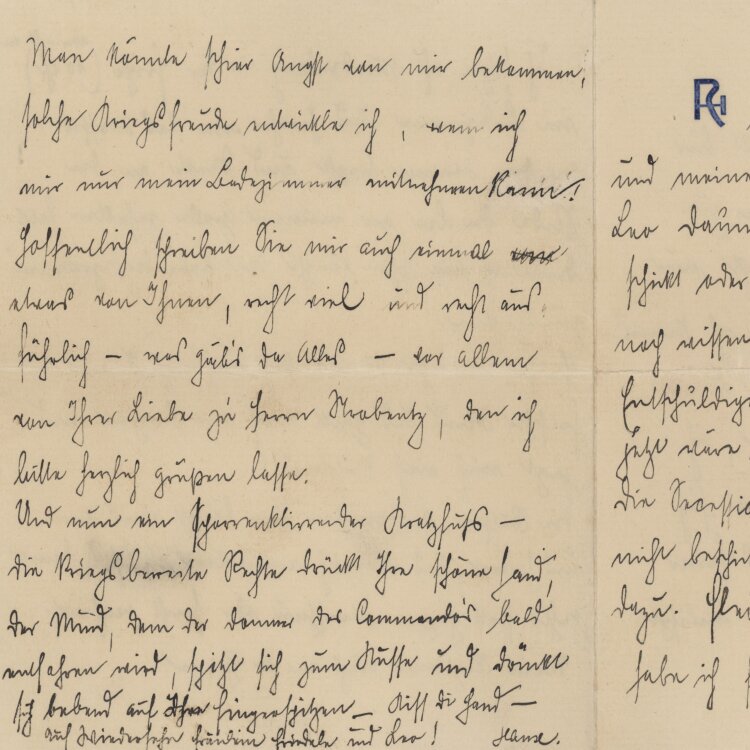 Man könnte schier Angst von mir bekommen,
solche Kriegsfreude entwickle ich, wenn ich
mir nur mein Badezimmer mitnehmen kann!
Hoffentlich schreiben Sie mir auch einmal
etwas von Ihnen, recht viel und recht aus-
führlich – was gäb's da Alles – vor allem
von Ihrer Liebe zu Herrn, den ich
bitte herzlich grüßen lasse.
Und nun ein Sporrenklirrender Kratzfuss –
die Kriegsbereite Rechte drückt Ihre schöne Hand,
der Mund, dem der Donner des Commando's bald
entfahren wird, spitzt sich zum Kusse und drückt
sich bebend auf Ihre Fingerspitzen – Küss die Hand –
auf Wiedersehn Fräulein und Leo! Hans.
RH
und meine
Leo Däum
schickt oder
noch wissen
Entschuldige
jetzt wäre
die Secessio
nicht beschi
dazu.
habe ich